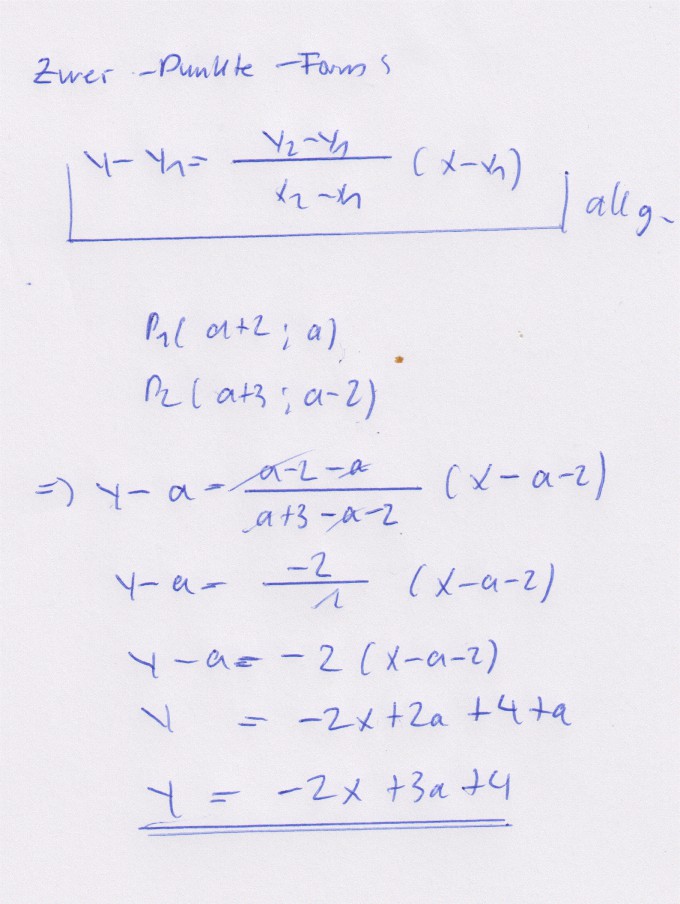 Zwei-Punkte-Form:
y - y₁ = (y₂ - y₁)/(x₂ - x₁) (x - x₁) allg.
P₁( a+2 ; a)
P₂( a+3 ; a-2)
=> y - a = (a-2-a)/(a+3-a-2) (x - a-2)
y - a = -2/1 (x-a-2)
y - a = -2 (x-a-2)
y = -2x+2a+4+a
y = -2x+3a+4